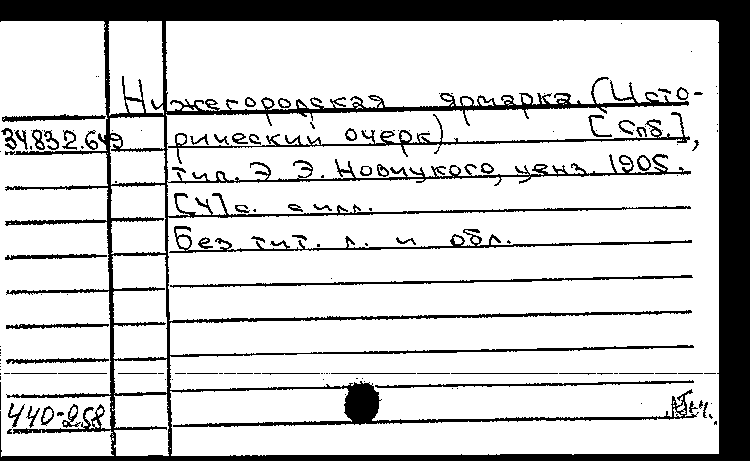 Нижегородская ярмарка. (Исто-
34.832.649 рический очерк). [Спб.],
тип. Э. Э. Новицкого, ценз. 1905.
[4] с. с илл.
Без тит. л. и обл.
440-258